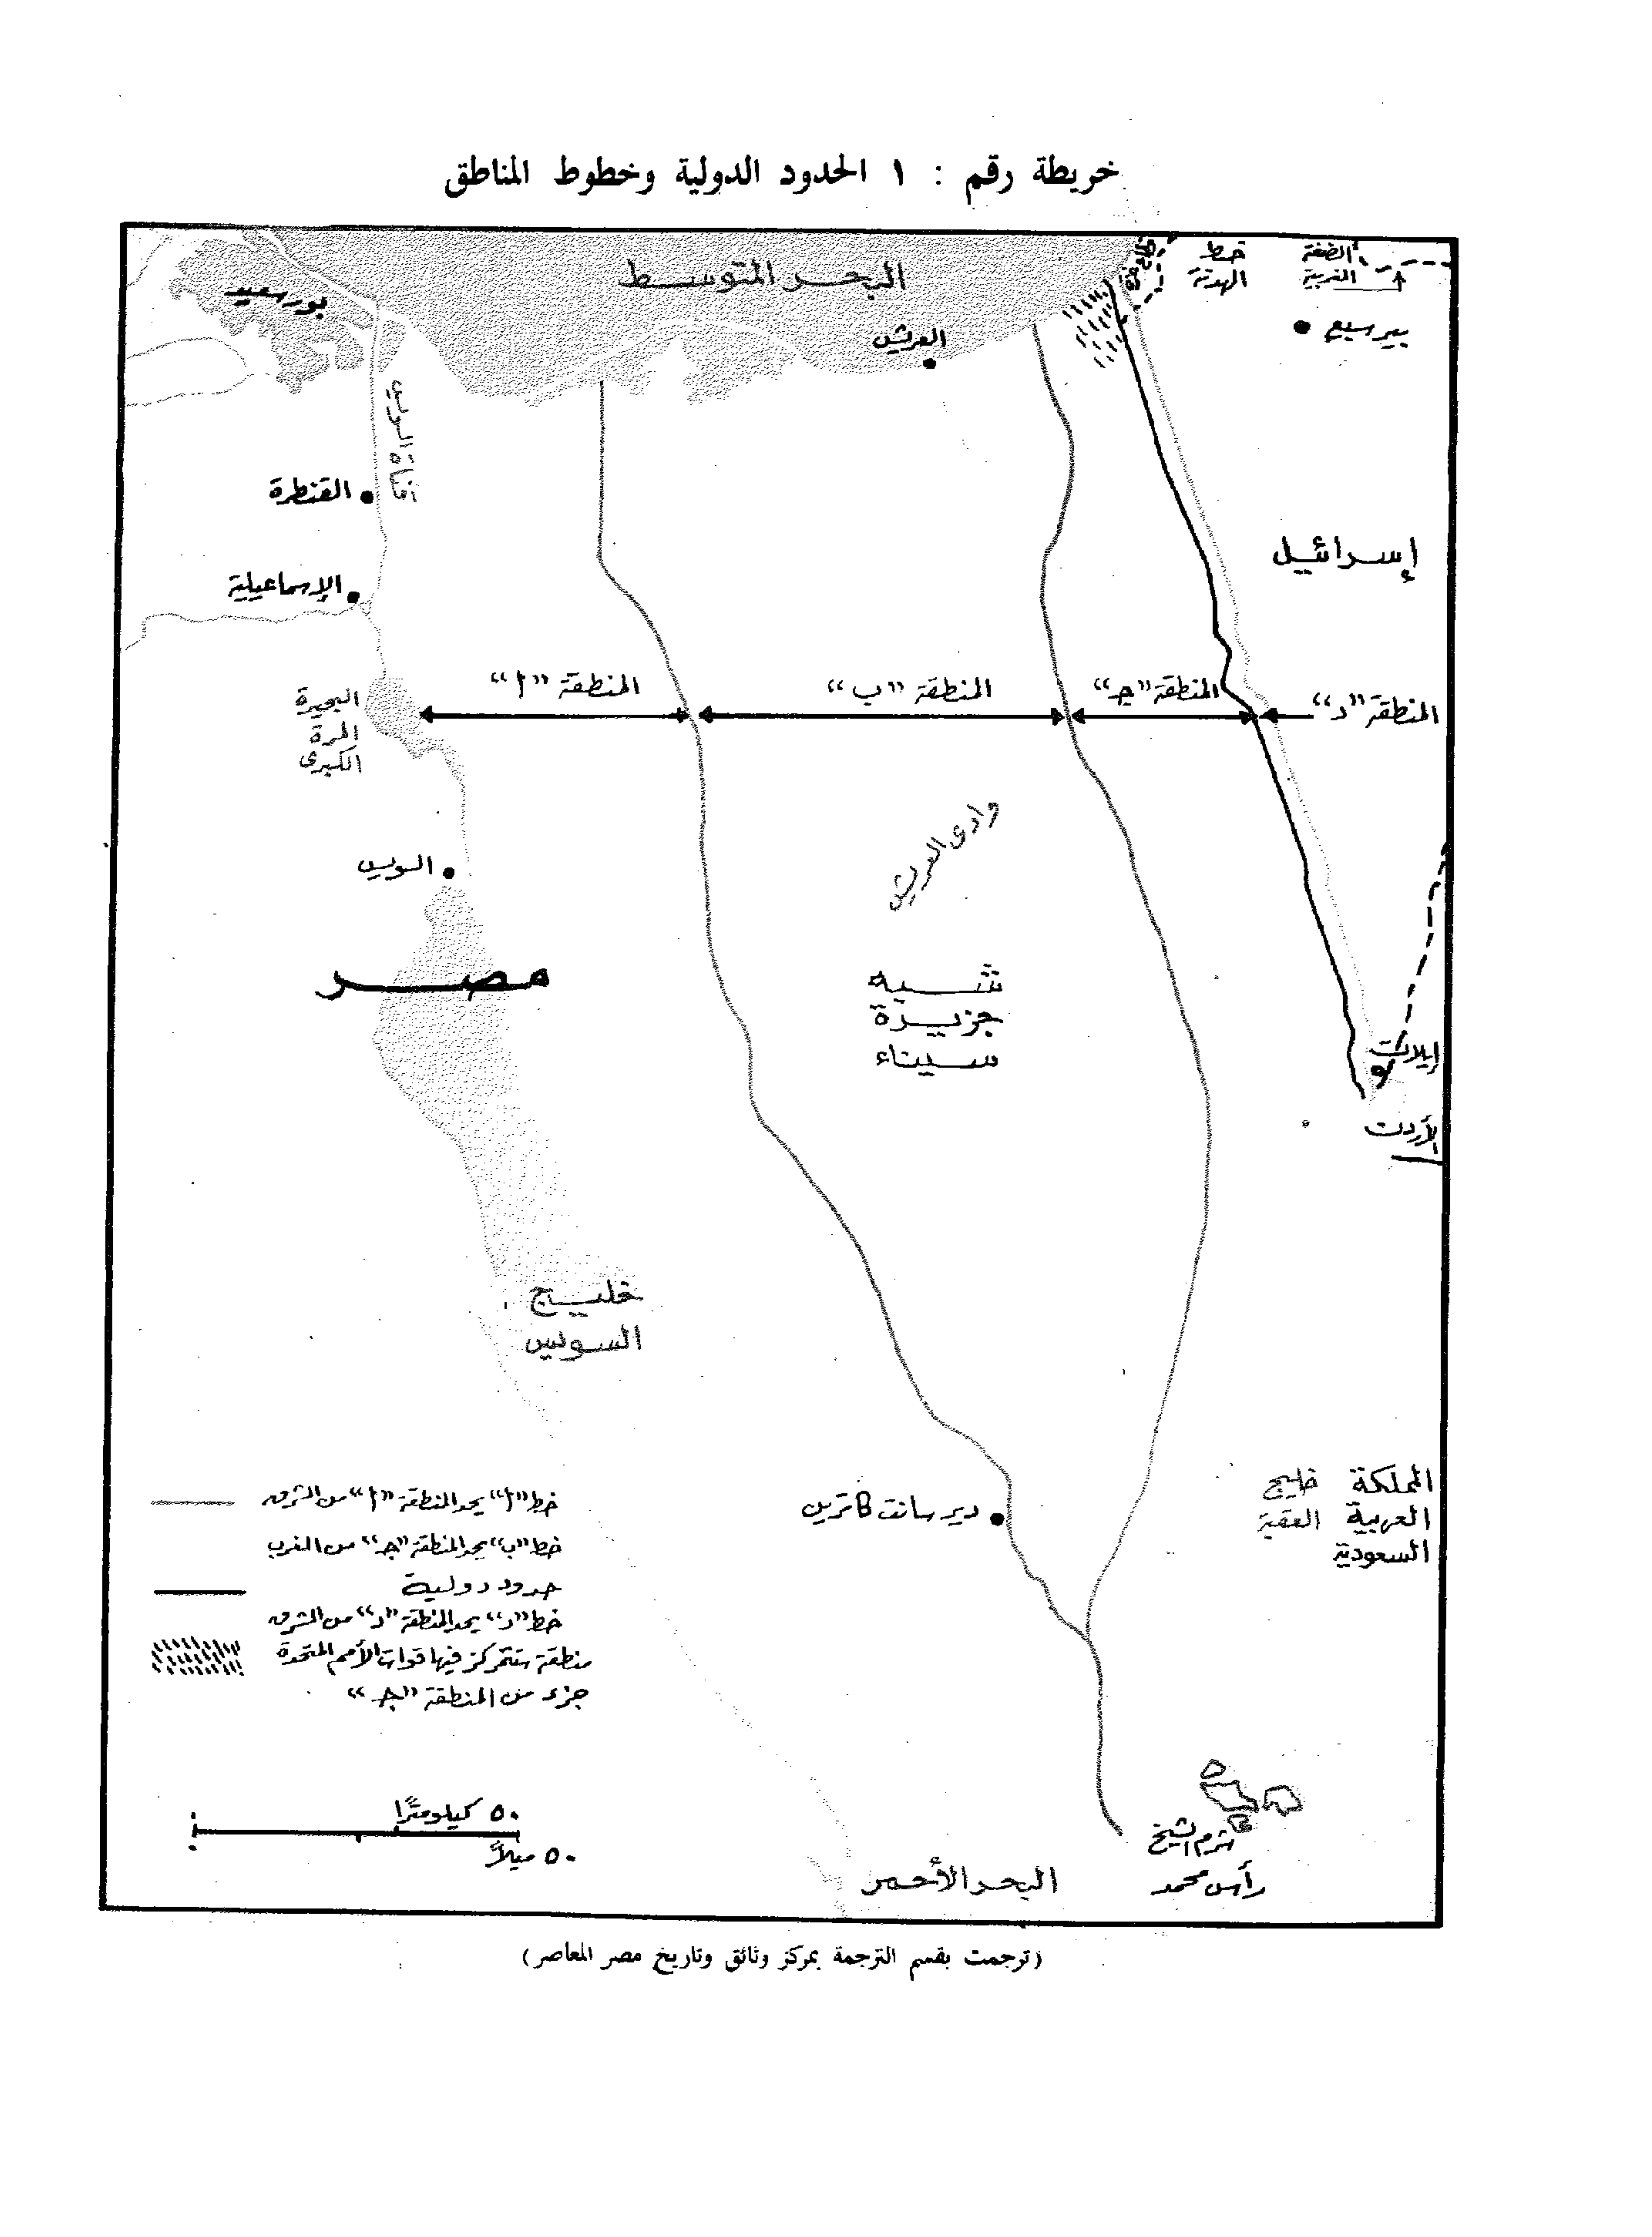 خريطة رقم : ١ الحدود الدولية وخطوط المناطق
البحر المتوسط
خط
الهدنة
الضفة
الغربية
بورسعيد
العريش
بير سبع
قناة السويس
القنطرة
إسرائيل
الإسماعيلية
المنطقة "أ"
المنطقة "ب"
المنطقة "جـ"
المنطقة "د"
البحيرة
المرة
الكبرى
وادى العريش
السويس
مصر
شبه
جزيرة
سيناء
إيلات
الأردن
خليج
السويس
المملكة
العربية
السعودية
خليج
العقبة
دير سانت كاترين
خط "أ" يحد المنطقة "أ" من الشرق
خط "ب" يحد المنطقة "جـ" من الغرب
حدود دولية
خط "د" يحد المنطقة "د" من الشرق
منطقة ستتمركز فيها قوات الأمم المتحدة
جزء من المنطقة "جـ"
٥٠ كيلومترًا
٥٠ ميلاً
شرم الشيخ
رأس محمد
البحر الأحمر
(ترجمت بقسم الترجمة بمركز وثائق وتاريخ مصر المعاصر)